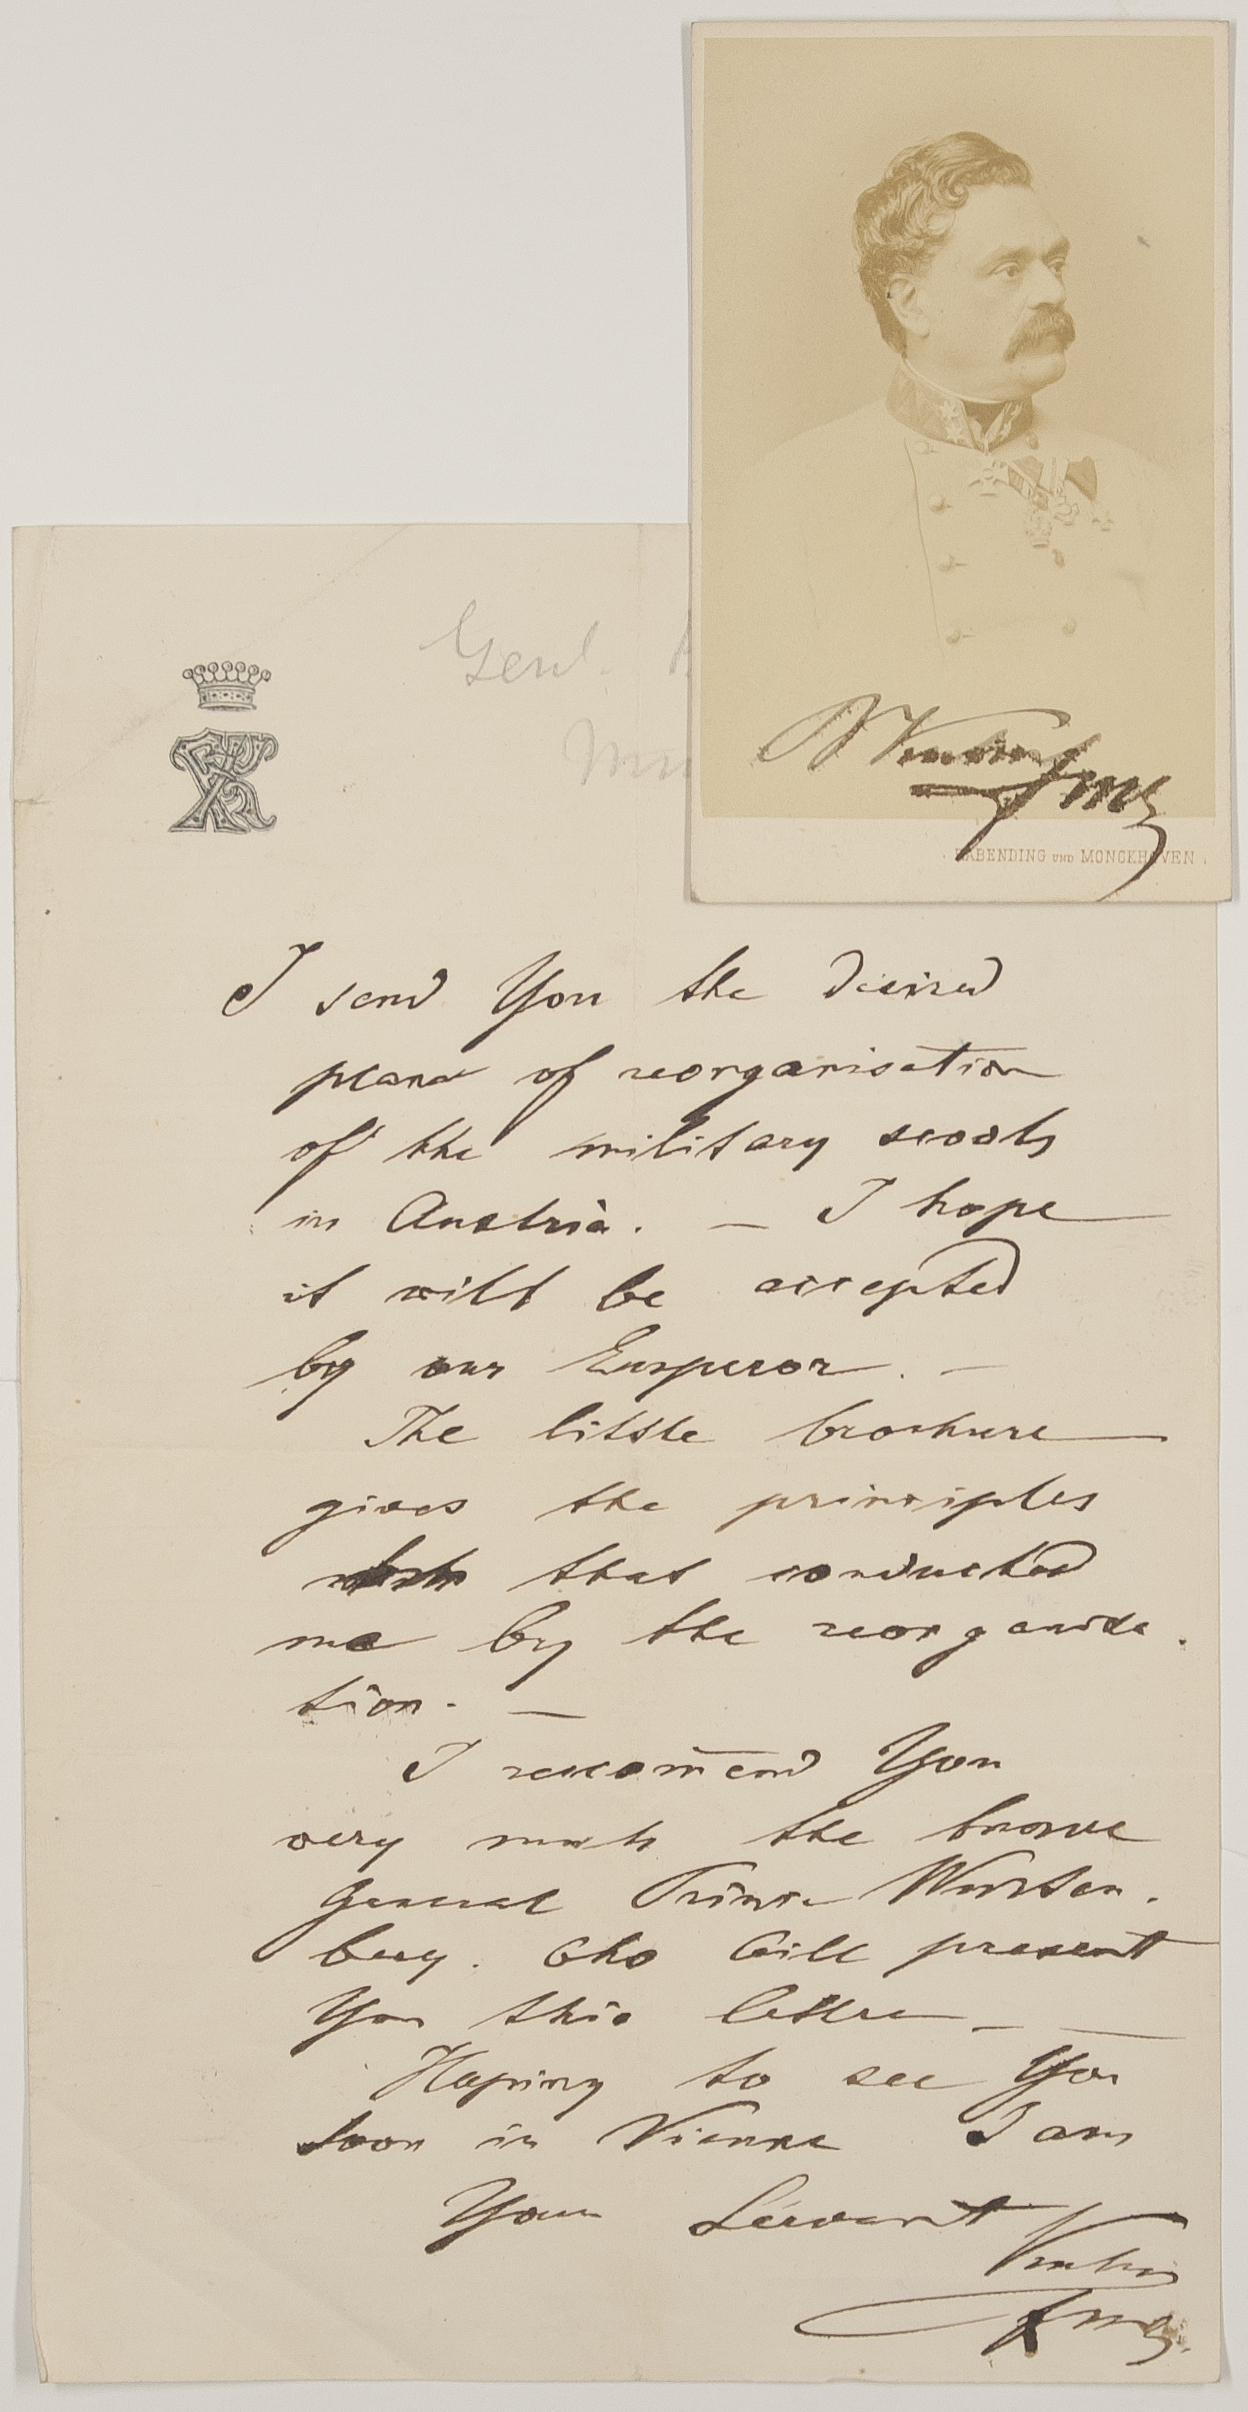 Genl.
RABENDING UND MONCKHOVEN.
I send You the desired
plans of reorganisation
of the military scools
in Austria. — I hope
it will be accepted
by our Emperor. —
The little brochure
gives the principles
that conducted
me by the reorganisa
tion. —
I reccom̄end You
very much the brave
General Prince Würten.
berg. Who will present
You this lettre. —
Hoping to see You
soon in Vienna I am
Your Servant